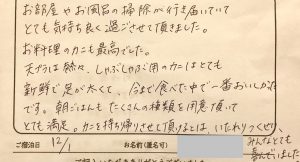 お部屋やお風呂の掃除が行き届いていて
とても気持ち良く過ごさせて頂きました。
お料理のカニも最高でした。
天プラは熱々、しゃぶしゃぶ用のカニはとても
新鮮で足が太くて、今まで食べた中で一番おいしかった
です。朝ごはんもたくさんの種類を用意頂いて
とても満足。カニを持ち帰りさせて頂けるとは、いたれりつくせり。
みんなとても
喜んでいました
ご宿泊日 12/1 お名前(匿名可)